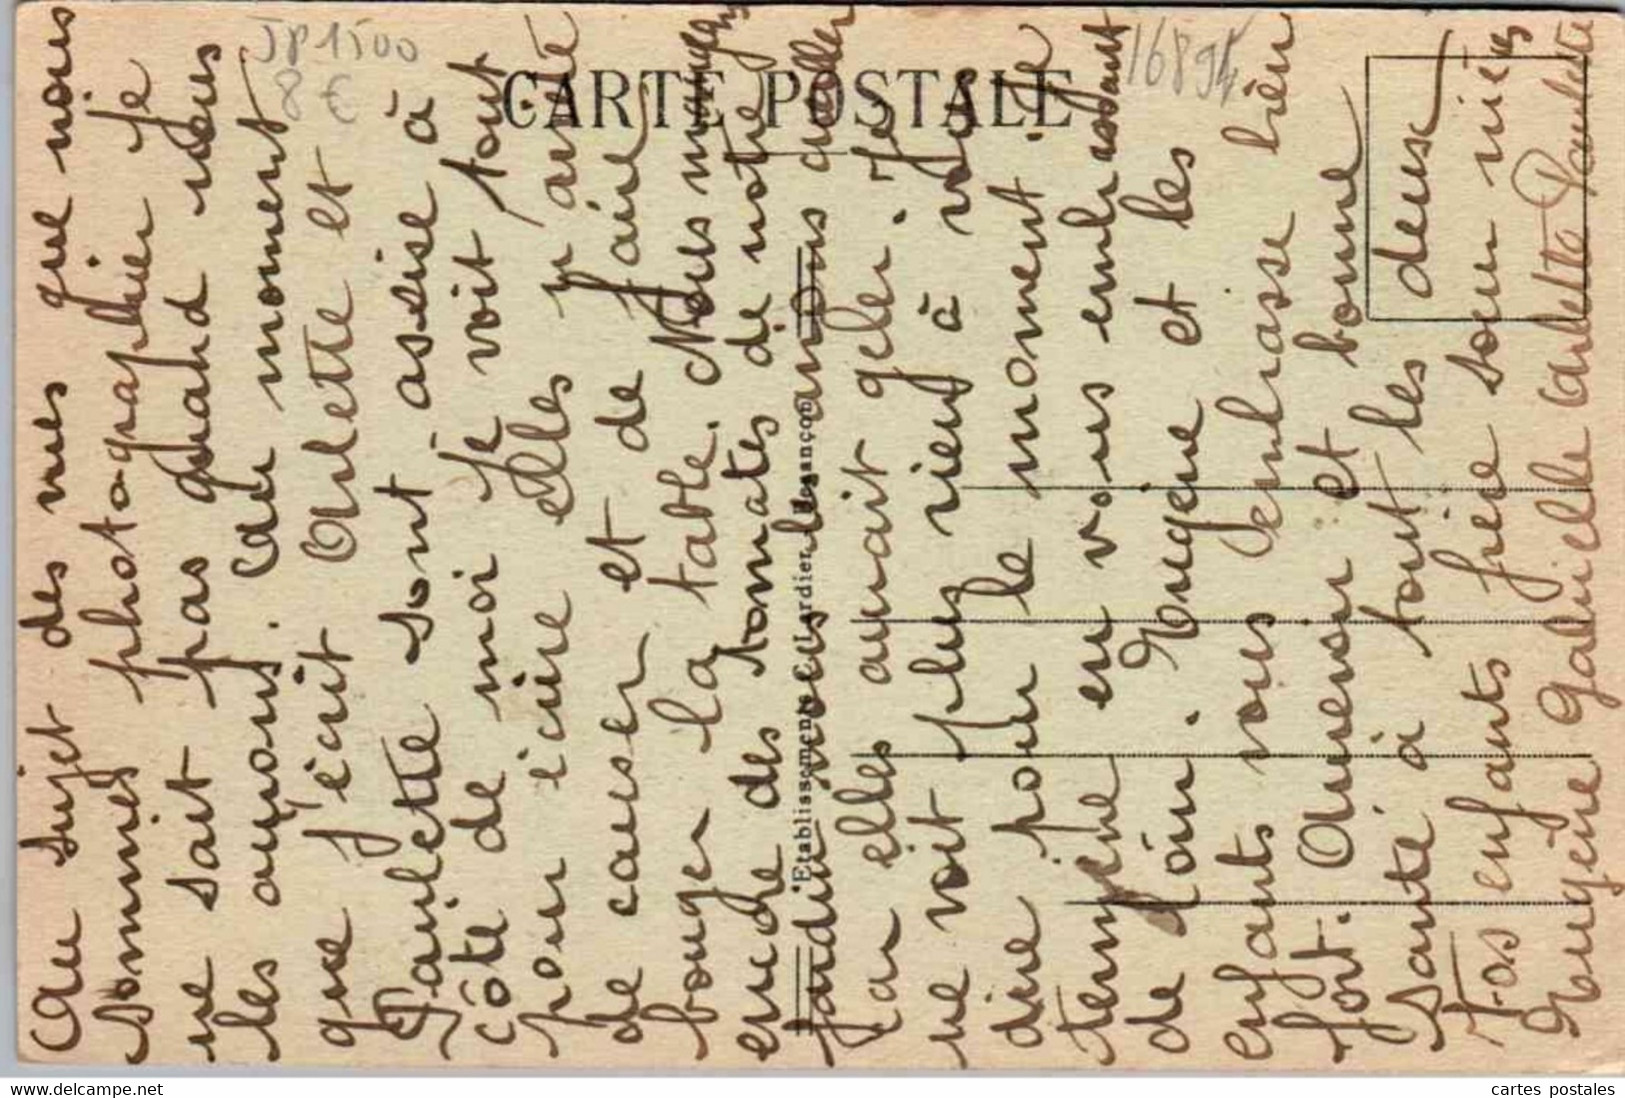 JP1500
8 €
16894
CARTE POSTALE
Etablissements C. Lardier, Besançon
Au sujet des vues que nous
sommes photographier je
ne sait pas quand nous
les aurons. Au moment
que j'écrit Arlette et
Paulette sont assise à
côté de moi je voit tout
pour écire elles y arrête
de causer et de faire
bouger la table. Nous mangeons
encore des tomates de notre
jardin nous les avons cueiller
car elles aurait geler. Je
ne voit plus rien à vous
dire pour le moment je
termine en vous embrassant
de loin. Eugène et les
enfants vous embrasse bien
fort. Aurevoir et bonne
santé à tout les deux
Vos enfants frère soeur nièces
Eugène Gabrielle Arlette Paulette
delcampe.net
cartes postales